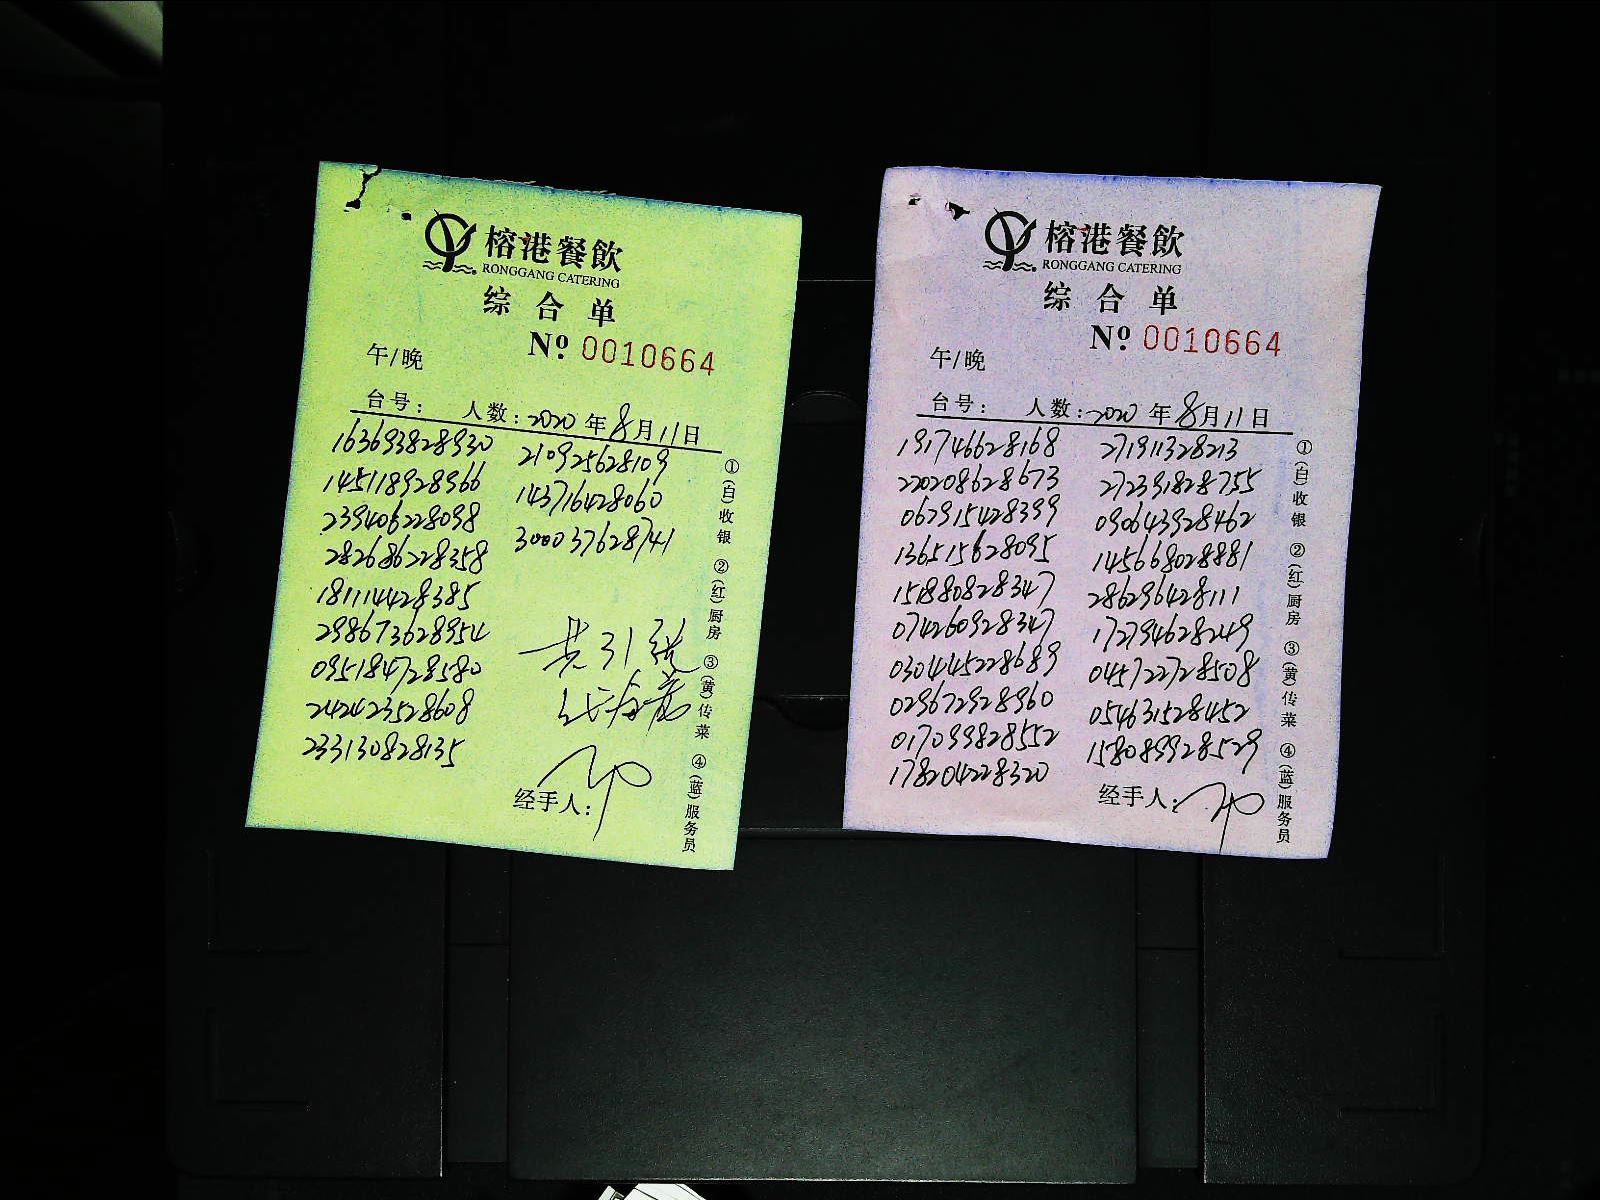 榕港餐飲
RONGGANG CATERING
综合单
Nº 0010664
午/晚
台号： 人数：2020年8月11日
163693828930 210925628109
145118928966 143716428060
239406228098 300037628741
282686228358
181114428385
298673628954
095184728580
242423528608
233130828135
经手人：
①(白)收银 ②(红)厨房 ③(黄)传菜 ④(蓝)服务员
榕港餐飲
RONGGANG CATERING
综合单
Nº 0010664
午/晚
台号： 人数：2020年8月11日
191746628168 271911328213
220208628673 272391828755
062915428399 090643928462
136515628095 145668028881
151880828347 286296428111
074260928347 172794628249
0304445228689 045722728508
029672928960 054631528452
017099828552 158089928529
178204228320
经手人：
①(白)收银 ②(红)厨房 ③(黄)传菜 ④(蓝)服务员